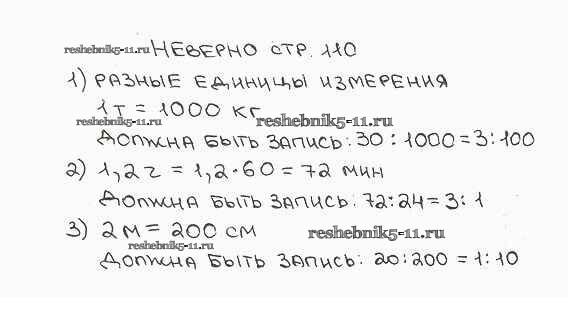 reshebnik5-11.ru НЕВЕРНО СТР. 110
1) РАЗНЫЕ ЕДИНИЦЫ ИЗМЕРЕНИЯ
1 т = 1000 кг
reshebnik5-11.ru reshebnik5-11.ru
ДОЛЖНА БЫТЬ ЗАПИСЬ: 30 : 1000 = 3 : 100
2) 1,2 ч = 1,2 · 60 = 72 мин
ДОЛЖНА БЫТЬ ЗАПИСЬ: 72 : 24 = 3 : 1
3) 2 м = 200 см reshebnik5-11.ru
reshebnik5-11.ru
ДОЛЖНА БЫТЬ ЗАПИСЬ: 20 : 200 = 1 : 10